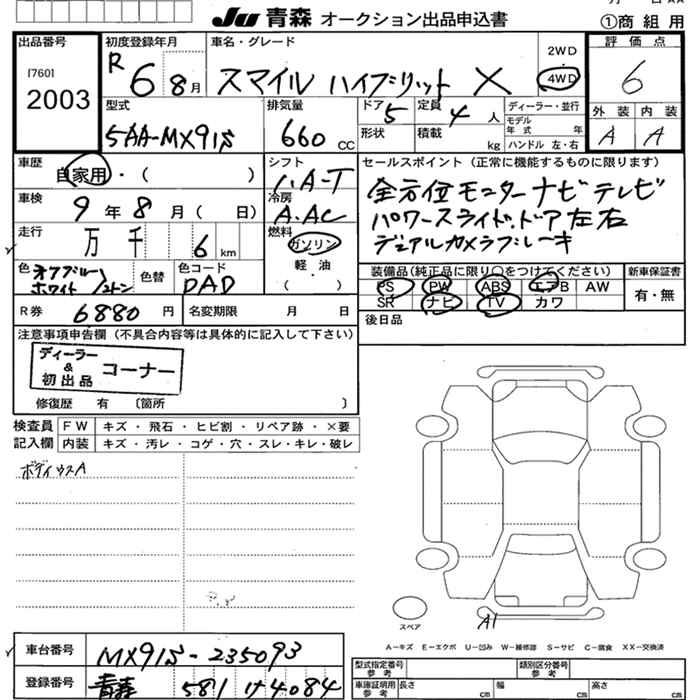 JU 青森 オークション出品申込書
①商組用
出品番号
[760]
2003
初度登録年月
R 6 8月
車名・グレード
スマイル ハイブリット X
2WD
4WD
評価点
6
外装 内装
A A
型式
5AA-MX91S
排気量
660 CC
ドア 5
形状
定員 4 人
積載 kg
ディーラー・並行
モデル年式 年
ハンドル 左・右
車歴
自家用・( )
シフト
I.A-T
車検
9年8月( 日)
冷房
A.AC
走行
万 千 6 km
燃料
ガソリン
軽・油
( )
色
オフブルー
ホワイト 2トン
色替
色コード
DAD
R券 6880 円
名変期限 月 日
セールスポイント (正常に機能するものに限ります)
全方位モニターナビテレビ
パワースライドドア左右
デュアルカメラブレーキ
装備品(純正品に限り○をつけてください)
PS PW ABS エアB AW
SR ナビ TV カワ
新車保証書
有・無
後日品
注意事項申告欄 (不具合内容等は具体的に記入して下さい)
ディーラー
&
初出品
コーナー
修復歴 有 〔箇所 〕
検査員
記入欄
FW キズ・飛石・ヒビ割・リペア跡・×要
内装 キズ・汚レ・コゲ・穴・スレ・キレ・破レ
ボディウスA
スペア
A1
A-キズ E-エクボ U-凹み W-補修跡 S-サビ C-腐食 XX-交換済
車台番号
MX91S-235093
登録番号
青森 581 け4084
型式指定番号
参考
類別区分番号
参考
車庫証明用
参考
長さ cm
幅 cm
高さ cm